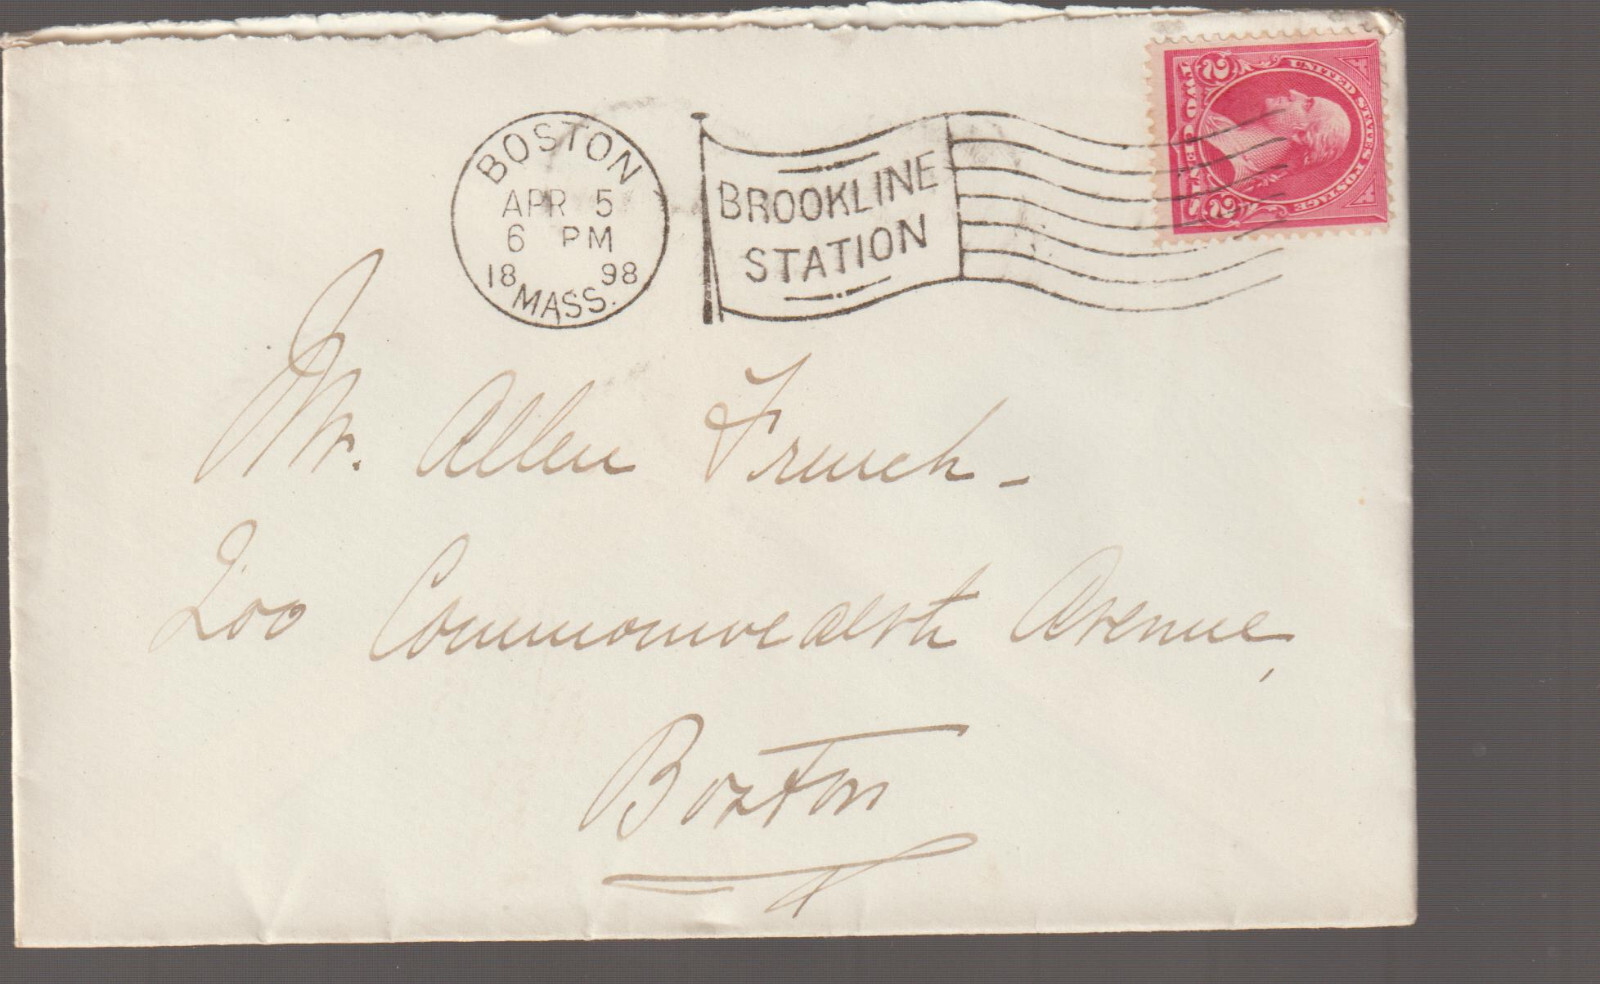 BOSTON
APR 5
6 PM
1898
MASS.
BROOKLINE
STATION
UNITED STATES POSTAGE
2 TWO CENTS 2
Mr. Allen French -
200 Commonwealth Avenue,
Boston